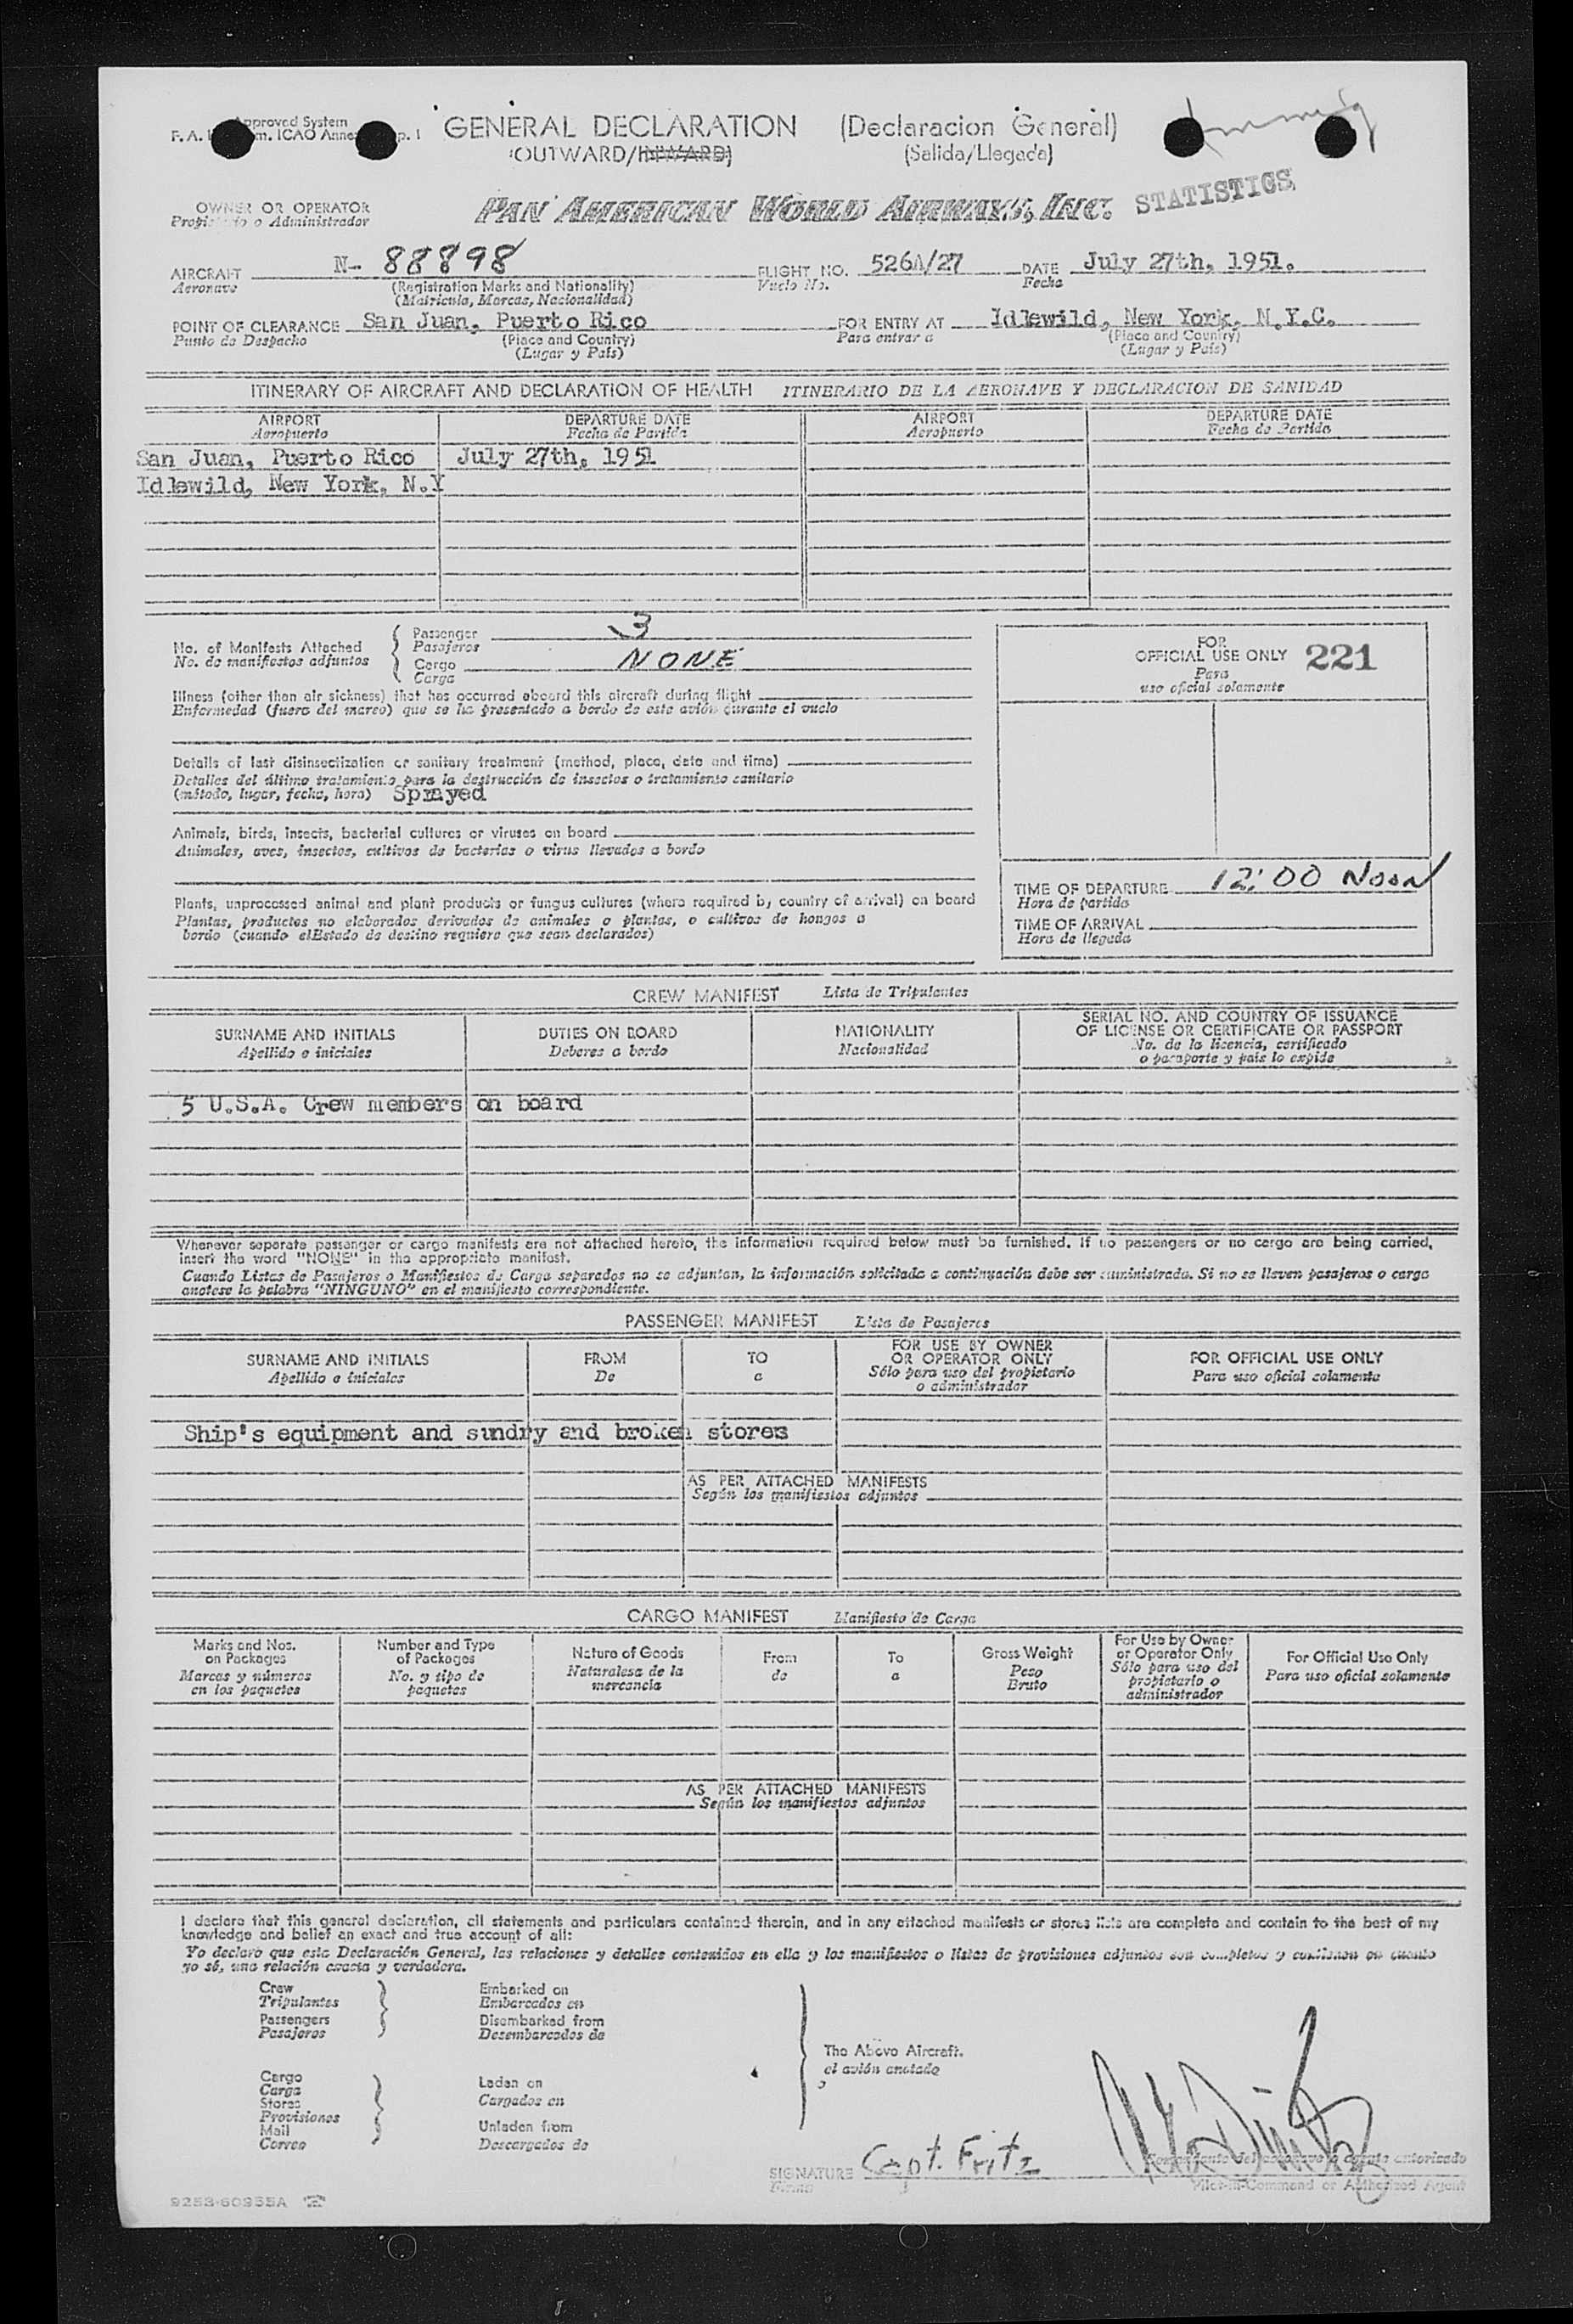 Approved System
F. A. m. ICAO Anne p. 1
GENERAL DECLARATION (Declaracion General)
(OUTWARD/INWARD) (Salida/Llegada)
STATISTICS
OWNER OR OPERATOR PAN AMERICAN WORLD AIRWAYS, INC.
o Administrador
AIRCRAFT N- 88898 FLIGHT NO. 526A/27 DATE July 27th, 1951.
Aeronave (Registration Marks and Nationality) Vuelo No. Fecha
(Matricula, Marcas, Nacionalidad)
POINT OF CLEARANCE San Juan, Puerto Rico FOR ENTRY AT Idlewild, New York, N.Y.C.
Punto de Despacho (Place and Country) Para entrar a (Place and Country)
(Lugar y País) (Lugar y País)
ITINERARY OF AIRCRAFT AND DECLARATION OF HEALTH ITINERARIO DE LA AERONAVE Y DECLARACION DE SANIDAD
AIRPORT DEPARTURE DATE AIRPORT DEPARTURE DATE
Aeropuerto Fecha de Partida Aeropuerto Fecha de Partida
San Juan, Puerto Rico July 27th, 1951
Idlewild, New York, N.Y
No. of Manifests Attached Passenger 3
No. de manifiestos adjuntos Pasajeros
Cargo NONE
Carga
FOR
OFFICIAL USE ONLY 221
Para
uso oficial solamente
Illness (other than air sickness) that has occurred aboard this aircraft during flight
Enfermedad (fuera del mareo) que se ha presentado a bordo de este avión durante el vuelo
Details of last disinsectization or sanitary treatment (method, place, date and time)
Detalles del último tratamiento para la destrucción de insectos o tratamiento sanitario
(método, lugar, fecha, hora) Sprayed
Animals, birds, insects, bacterial cultures or viruses on board
Animales, aves, insectos, cultivos de bacterias o virus llevados a bordo
Plants, unprocessed animal and plant products or fungus cultures (where required by country of arrival) on board
Plantas, productos no elaborados derivados de animales o plantas, o cultivos de hongos a
bordo (cuando elEstado de destino requiere que sean declarados)
TIME OF DEPARTURE 12:00 NOON
Hora de partida
TIME OF ARRIVAL
Hora de llegada
CREW MANIFEST Lista de Tripulantes
SURNAME AND INITIALS DUTIES ON BOARD NATIONALITY SERIAL NO. AND COUNTRY OF ISSUANCE
OF LICENSE OR CERTIFICATE OR PASSPORT
Apellido e iniciales Deberes a bordo Nacionalidad No. de la licencia, certificado
o pasaporte y país lo expide
5 U.S.A. Crew members on board
Whenever separate passenger or cargo manifests are not attached hereto, the information required below must be furnished. If no passengers or no cargo are being carried,
insert the word "NONE" in the appropriate manifest.
Cuando Listas de Pasajeros o Manifiestos de Carga separados no se adjuntan, la información solicitada a continuación debe ser suministrada. Si no se lleven pasajeros o carga
anotese la palabra "NINGUNO" en el manifiesto correspondiente.
PASSENGER MANIFEST Lista de Pasajeros
SURNAME AND INITIALS FROM TO FOR USE BY OWNER
OR OPERATOR ONLY FOR OFFICIAL USE ONLY
Apellido e iniciales De a Sólo para uso del propietario
o administrador Para uso oficial solamente
Ship's equipment and sundry and broken stores
AS PER ATTACHED MANIFESTS
Según los manifiestos adjuntos
CARGO MANIFEST Manifiesto de Carga
Marks and Nos.
on Packages
Marcas y números
en los paquetes
Number and Type
of Packages
No. y tipo de
paquetes
Nature of Goods
Naturalesa de la
mercancía
From
de
To
a
Gross Weight
Peso
Bruto
For Use by Owner
or Operator Only
Sólo para uso del
propietario o
administrador
For Official Use Only
Para uso oficial solamente
AS PER ATTACHED MANIFESTS
Según los manifiestos adjuntos
I declare that this general declaration, all statements and particulars contained therein, and in any attached manifests or stores lists are complete and contain to the best of my
knowledge and belief an exact and true account of all:
Yo declaro que esta Declaración General, las relaciones y detalles contenidos en ella y los manifiestos o listas de provisiones adjuntos son completos y contienen en cuanto
yo sé, una relación exacta y verdadera.
Crew
Tripulantes
Passengers
Pasajeros
Embarked on
Embarcados en
Disembarked from
Desembarcados de
The Above Aircraft.
el avión anotado
Cargo
Carga
Stores
Provisiones
Mail
Correo
Laden on
Cargados en
Unladen from
Descargados de
SIGNATURE Capt. Fritz
Firma
agente autorizado
Pilot-in-Command or Authorized Agent
9253-60935A